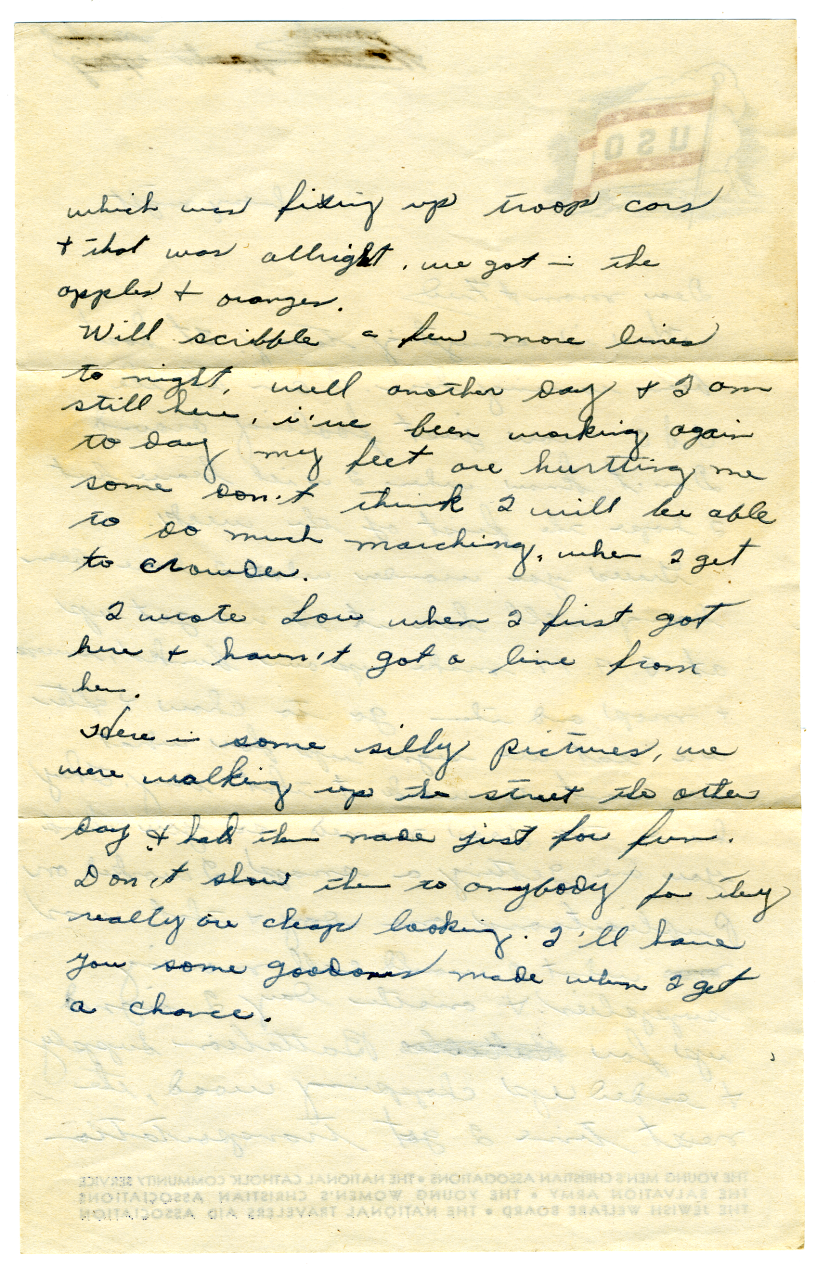 which was fixing up troop cars
+ that was allright, we got in the
apples + oranges.
Will scribble a few more lines
to night, well another day + I am
still here, i've been working again
to day my feet are hurtting me
some don't think I will be able
to do much marching, when I get
to Crowder.
I wrote Lou when I first got
here + havn't got a line from
her.
Here is some silly pictures, we
were walking up the street the other
day + had them made just for fun.
Don't show them to anybody for they
really are cheap looking. I'll have
you some good ones made when I get
a chance.
USO
THE YOUNG MEN'S CHRISTIAN ASSOCIATIONS • THE NATIONAL CATHOLIC COMMUNITY SERVICE
THE SALVATION ARMY • THE YOUNG WOMEN'S CHRISTIAN ASSOCIATIONS
THE JEWISH WELFARE BOARD • THE NATIONAL TRAVELERS AID ASSOCIATION